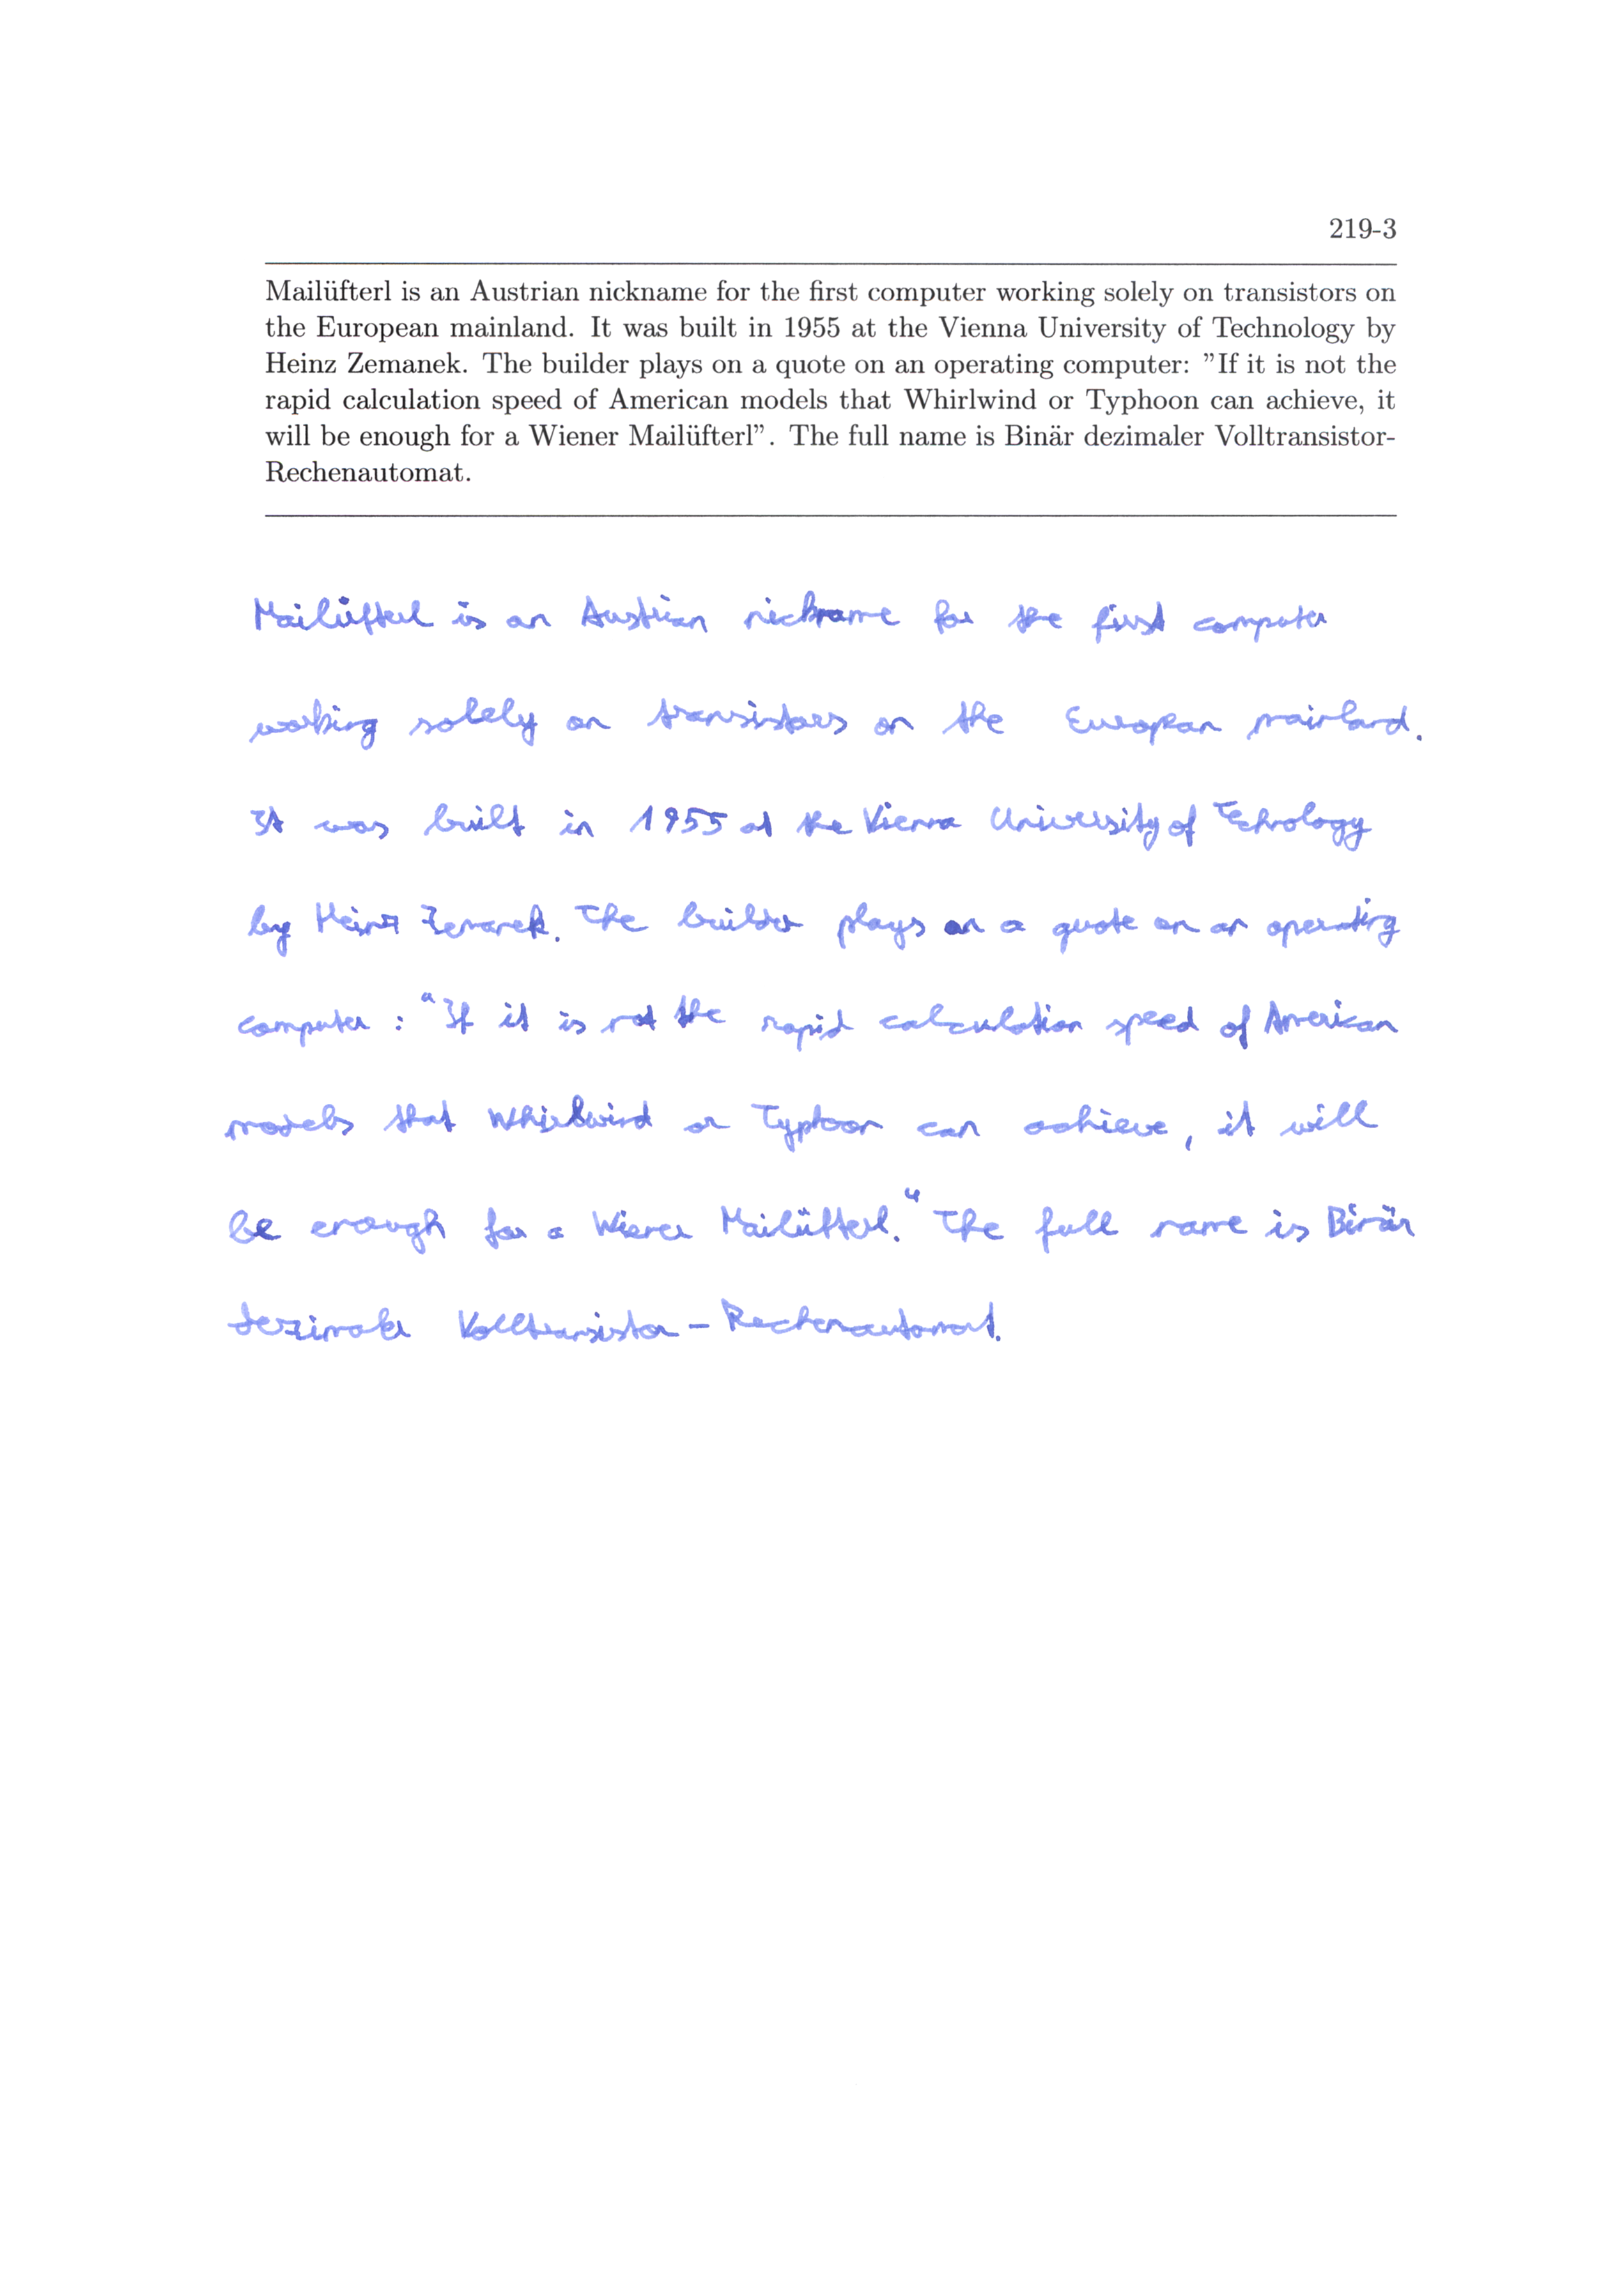 219-3
Mailüfterl is an Austrian nickname for the first computer working solely on transistors on
the European mainland. It was built in 1955 at the Vienna University of Technology by
Heinz Zemanek. The builder plays on a quote on an operating computer: ”If it is not the
rapid calculation speed of American models that Whirlwind or Typhoon can achieve, it
will be enough for a Wiener Mailüfterl”. The full name is Binär dezimaler Volltransistor-
Rechenautomat.
Mailüfterl is an Austrian nickname for the first computer
working solely on transistors on the European mainland.
It was built in 1955 at the Vienna University of Technology
by Heinz Zemanek. The builder plays on a quote on an operating
computer : "If it is not the rapid calculation speed of American
models that Whirlwind or Typhoon can achieve, it will
be enough for a Wiener Mailüfterl." The full name is Binär
dezimaler Volltransistor - Rechenautomat.